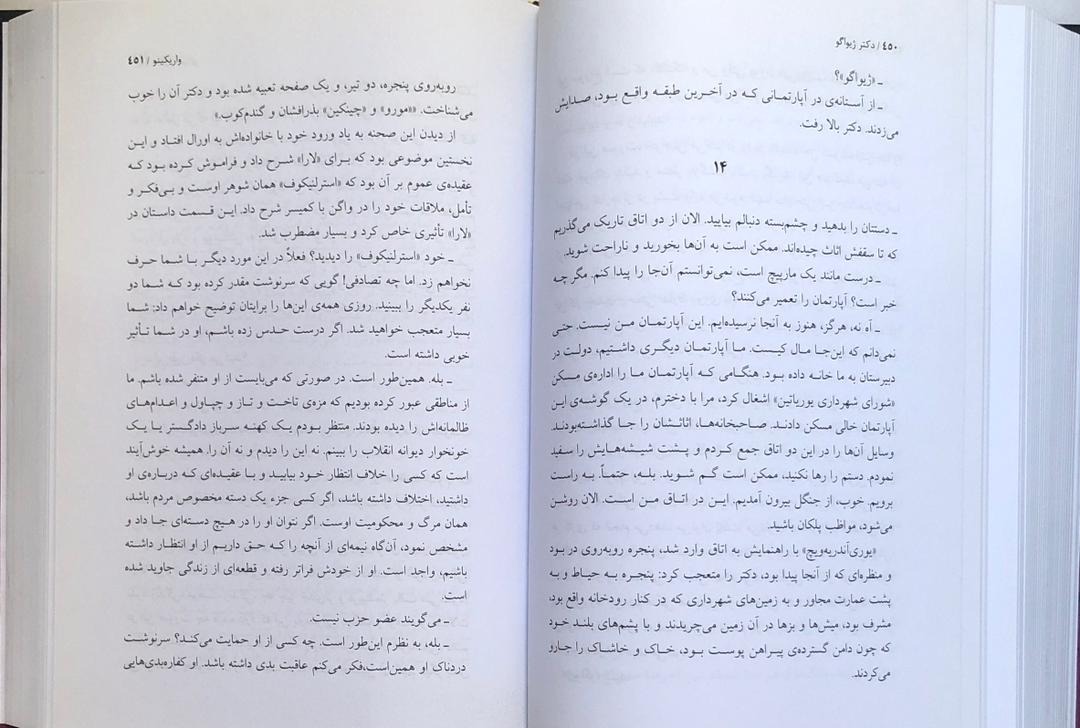 ۴۵۰ / دکتر ژیواگو
ـ «ژیواگو»؟
ـ از آستانه‌ی در آپارتمانی که در آخرین طبقه واقع بود، صدایش
می‌زدند. دکتر بالا رفت.
۱۴
ـ دستتان را بدهید و چشم‌بسته دنبالم بیایید. الان از دو اتاق تاریک می‌گذریم
که تا سقفش اثاث چیده‌اند. ممکن است به آن‌ها بخورید و ناراحت شوید.
ـ درست مانند یک مارپیچ است، نمی‌توانستم آن‌جا را پیدا کنم. مگر چه
خبر است؟ آپارتمان را تعمیر می‌کنند؟
ـ آه نه، هرگز، هنوز به آنجا نرسیده‌ایم. این آپارتمان من نیست. حتی
نمی‌دانم که این‌جا مال کیست. ما آپارتمان دیگری داشتیم، دولت در
دبیرستان به ما خانه داده بود. هنگامی که آپارتمان ما را اداره‌ی مسکن
«شورای شهرداری یوریاتین» اشغال کرد، مرا با دخترم، در یک گوشه‌ی این
آپارتمان خالی مسکن دادند. صاحبخانه‌ها، اثاثشان را جا گذاشته‌بودند.
وسایل آن‌ها را در این دو اتاق جمع کردم و پشت شیشه‌هایش را سفید
نمودم. دستم را رها نکنید، ممکن است گم شوید. بله، حتماً. به راست
برویم. خوب، از جنگل بیرون آمدیم. این در اتاق من است. الان روشن
می‌شود، مواظب پلکان باشید.
«یوری‌آندریه‌ویچ» با راهنمایش به اتاق وارد شد، پنجره روبه‌روی در بود
و منظره‌ای که از آنجا پیدا بود، دکتر را متعجب کرد: پنجره به حیاط و به
پشت عمارت مجاور و به زمین‌های شهرداری که در کنار رودخانه واقع بود،
مشرف بود، میش‌ها و بزها در آن زمین می‌چریدند و با پشم‌های بلند خود
که چون دامن گسترده‌ی پیراهن پوست بود، خاک و خاشاک را جارو
می‌کردند.
واریکینو / ۴۵۱
روبه‌روی پنجره، دو تیر، و یک صفحه تعبیه شده بود و دکتر آن را خوب
می‌شناخت. «مورو» و «چینکین» بذرافشان و گندم‌کوب.»
از دیدن این صحنه به یاد ورود خود با خانواده‌اش به اورال افتاد و این
نخستین موضوعی بود که برای «لارا» شرح داد و فراموش کرده بود که
عقیده‌ی عموم بر آن بود که «استرلنیکوف» همان شوهر اوست و بی‌فکر و
تأمل، ملاقات خود را در واگن با کمیسر شرح داد. این قسمت داستان در
«لارا» تأثیری خاص کرد و بسیار مضطرب شد.
ـ خود «استرلنیکوف» را دیدید؟ فعلاً در این مورد دیگر با شما حرف
نخواهم زد. اما چه تصادفی! گویی که سرنوشت مقدر کرده بود که شما دو
نفر یکدیگر را ببینید. روزی همه‌ی این‌ها را برایتان توضیح خواهم داد: شما
بسیار متعجب خواهید شد. اگر درست حدس زده باشم، او در شما تأثیر
خوبی داشته است.
ـ بله. همین‌طور است. در صورتی که می‌بایست از او متنفر شده باشم. ما
از مناطقی عبور کرده بودیم که مزه‌ی تاخت و تاز و چپاول و اعدام‌های
ظالمانه‌اش را دیده بودند. منتظر بودم یک کهنه سرباز دادگستر یا یک
خونخوار دیوانه انقلاب را ببینم. نه این را دیدم و نه آن را. همیشه خوش‌آیند
است که کسی را خلاف انتظار خود بیابید و با عقیده‌ای که درباره‌ی او
داشتید، اختلاف داشته باشد، اگر کسی جزء یک دسته مخصوص مردم باشد،
همان مرگ و محکومیت اوست. اگر نتوان او را در هیچ دسته‌ای جا داد و
مشخص نمود، آن‌گاه نیمه‌ای از آنچه را که حق داریم از او انتظار داشته
باشیم، واجد است. او از خودش فراتر رفته و قطعه‌ای از زندگی جاوید شده
است.
ـ می‌گویند عضو حزب نیست.
ـ بله، به نظرم این‌طور است. چه کسی از او حمایت می‌کند؟ سرنوشت
دردناک او همین‌است،فکر می‌کنم عاقبت بدی داشته باشد. او کفاره‌بدی‌هایی